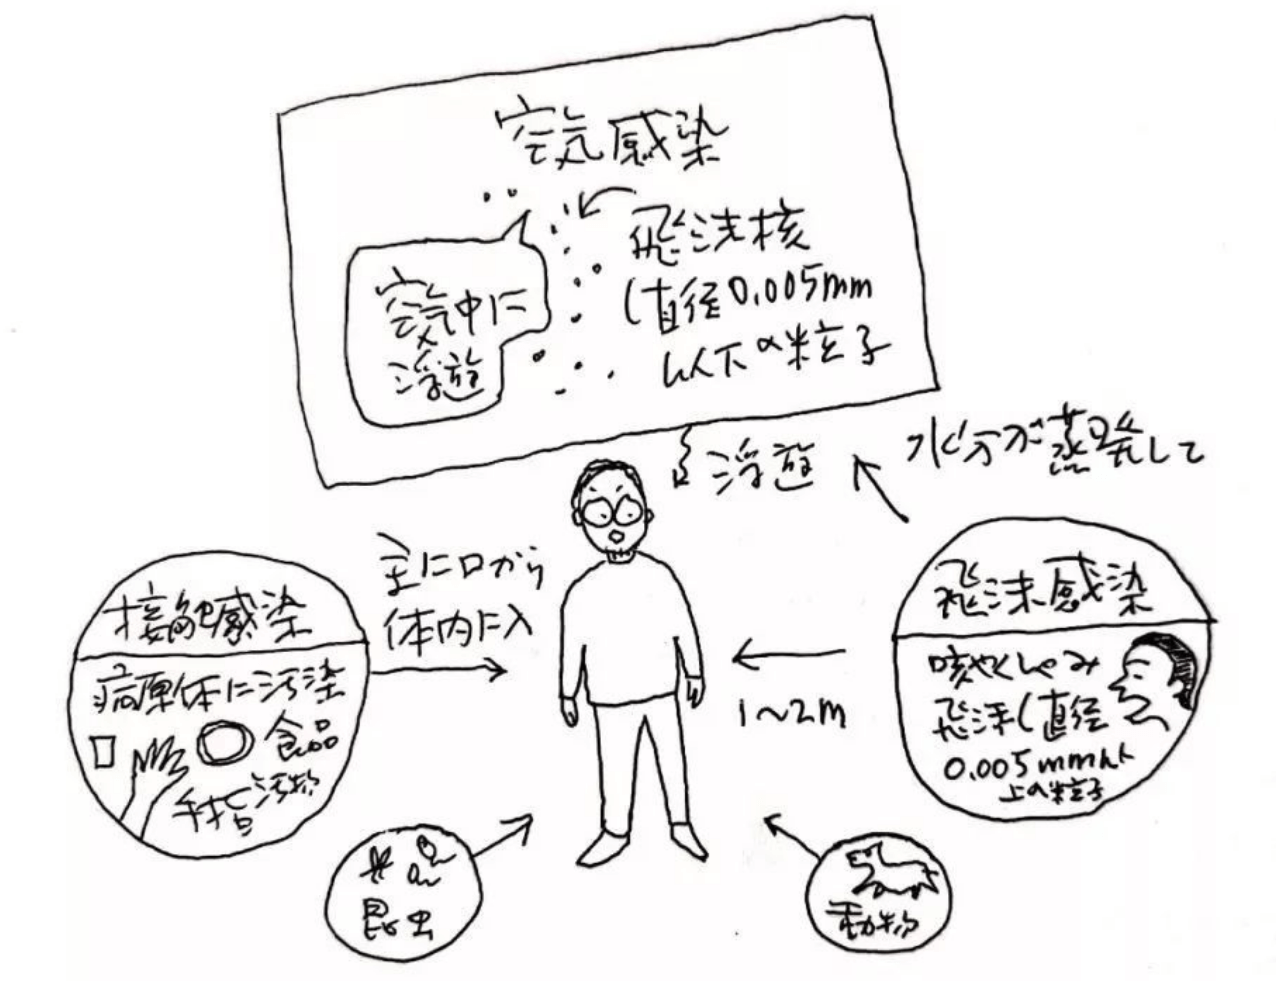 空気感染
飛沫核
(直径0.005mm
以下の粒子
空気中に
浮遊
浮遊
水分が蒸発して
主に口から
体内に入
接触感染
病原体に汚染
食品
手指 汚物
飛沫感染
咳やくしゃみ
飛沫(直径
0.005mm以
上の粒子
1〜2m
昆虫
動物